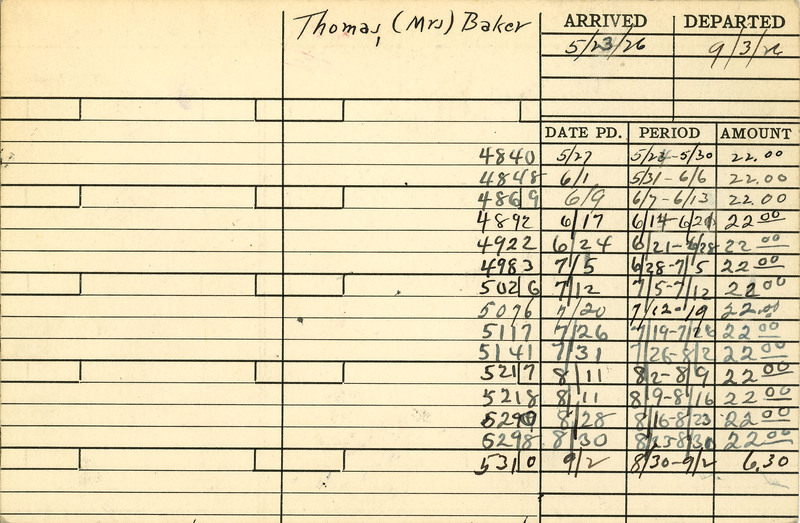 Thomas, (Mrs) Baker
ARRIVED DEPARTED
5/23/26 9/3/26
DATE PD. PERIOD AMOUNT
4840 5/27 5/24-5/30 22.00
4848 6/1 5/31-6/6 22.00
4869 6/9 6/7-6/13 22.00
4892 6/17 6/14-6/21 22 00
4922 6/24 6/21-6/28 22 00
4983 7/5 6/28-7/5 22 00
5026 7/12 7/5-7/12 22 00
5076 7/20 7/12-19 22.00
5117 7/26 7/19-7/26 22 00
5141 7/31 7/26-8/2 22 00
5217 8/11 8/2-8/9 22 00
5218 8/11 8/9-8/16 22 00
8/28 8/16-8/23 22 00
5298 8/30 8/23-8/30 22 00
5310 9/2 8/30-9/2 6.30